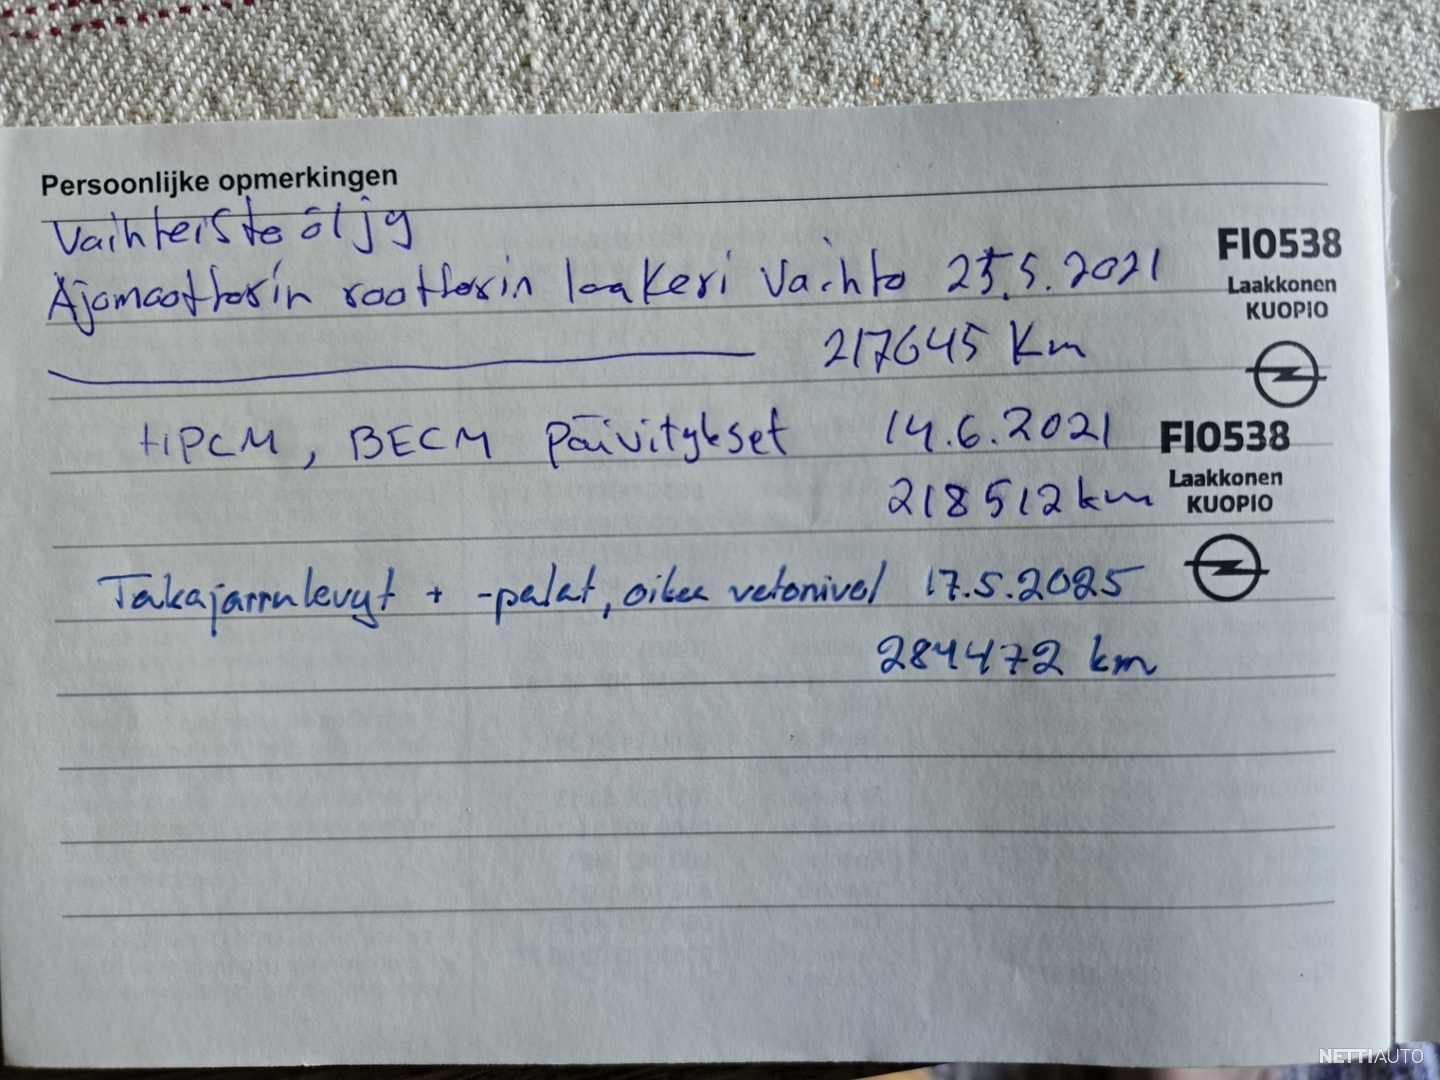 Persoonlijke opmerkingen
Vaihteisto öljy
Ajomoottorin roottorin laakeri vaihto 25.5.2021
217645 Km
FI0538
Laakkonen
KUOPIO
HPCM, BECM Päivitykset 14.6.2021
218512 km
FI0538
Laakkonen
KUOPIO
Takajarrulevyt + -palat, oikea vetonivel 17.5.2025
284472 km
NETTIAUTO